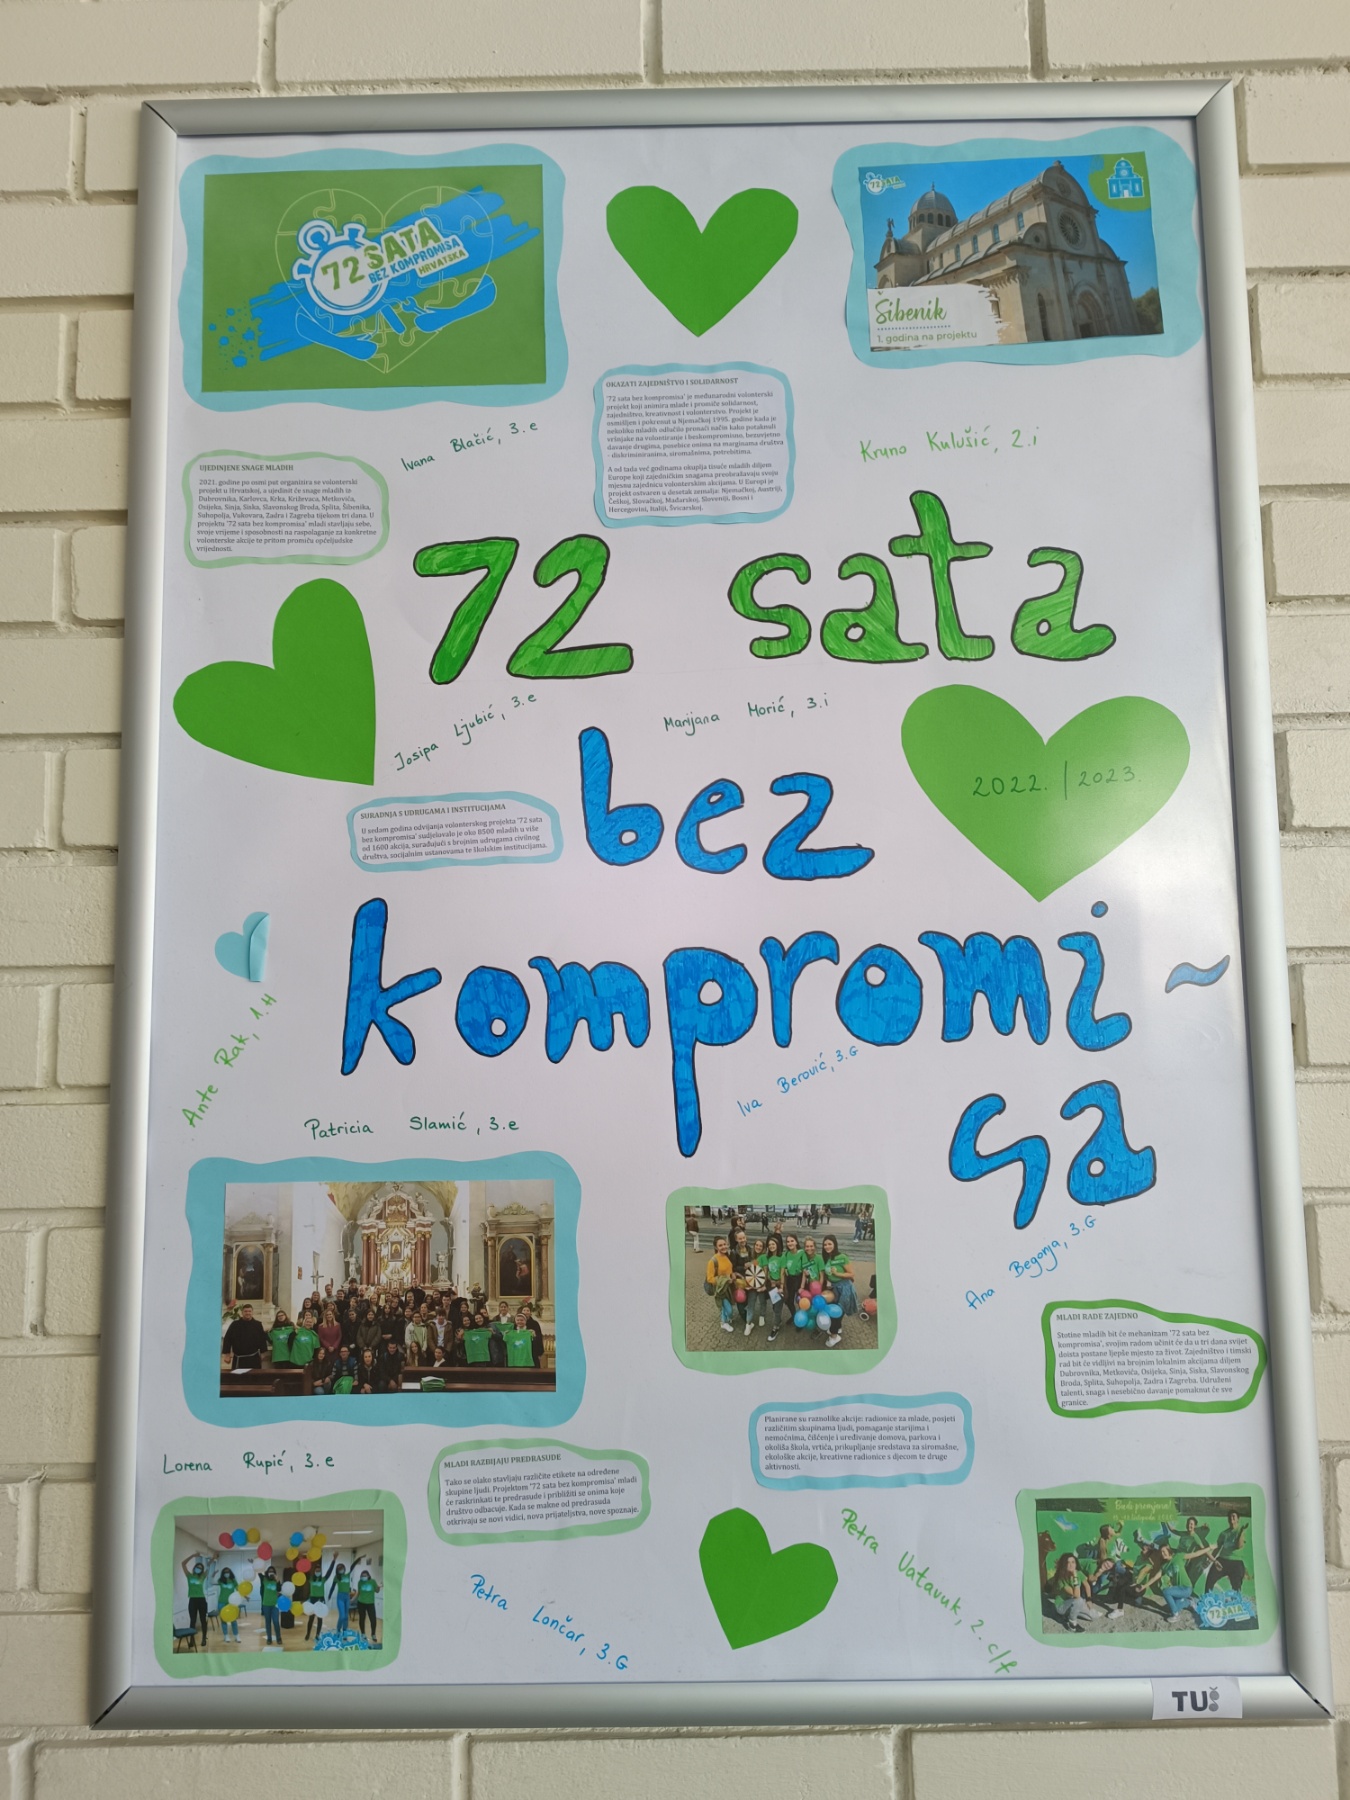 72 SATA
BEZ KOMPROMISA
HRVATSKA
72 SATA
Šibenik
1. godina na projektu
Ivana Blačić, 3.e
OKAZATI ZAJEDNIŠTVO I SOLIDARNOST
'72 sata bez kompromisa' je međunarodni volonterski
projekt koji animira mlade i promiče solidarnost,
zajedništvo, kreativnost i volonterstvo. Projekt je
osmišljen i pokrenut u Njemačkoj 1995. godine kada je
nekoliko mladih odlučilo pronaći način kako potaknuti
vršnjake na volontiranje i beskompromisno, bezuvjetno
davanje drugima, posebice onima na marginama društva
- diskriminiranima, siromašnima, potrebitima.
A od tada već godinama okuplja tisuće mladih diljem
Europe koji zajedničkim snagama preobražavaju svoju
mjesnu zajednicu volonterskim akcijama. U Europi je
projekt ostvaren u desetak zemalja: Njemačkoj, Austriji,
Češkoj, Slovačkoj, Mađarskoj, Sloveniji, Bosni i
Hercegovini, Italiji, Švicarskoj.
Kruno Kulušić, 2.i
UJEDINJENE SNAGE MLADIH
2021. godine po osmi put organizira se volonterski
projekt u Hrvatskoj, a ujedinit će snage mladih iz
Dubrovnika, Karlovca, Krka, Križevaca, Metkovića,
Osijeka, Sinja, Siska, Slavonskog Broda, Splita, Šibenika,
Suhopolja, Vukovara, Zadra i Zagreba tijekom tri dana. U
projektu '72 sata bez kompromisa' mladi stavljaju sebe,
svoje vrijeme i sposobnosti na raspolaganje za konkretne
volonterske akcije te pritom promiču općeljudske
vrijednosti.
72 sata
Josipa Ljubić, 3.e
Marijana Morić, 3.i
bez
2022. | 2023.
SURADNJA S UDRUGAMA I INSTITUCIJAMA
U sedam godina odvijanja volonterskog projekta '72 sata
bez kompromisa' sudjelovalo je oko 8500 mladih u više
od 1600 akcija, surađujući s brojnim udrugama civilnog
društva, socijalnim ustanovama te školskim institucijama.
kompromi-
sa
Ante Rak, 1.H
Iva Berović, 3.G
Patricia Slamić, 3.e
Ana Begonja, 3.G
MLADI RADE ZAJEDNO
Stotine mladih bit će mehanizam '72 sata bez
kompromisa', svojim radom učinit će da u tri dana svijet
doista postane ljepše mjesto za život. Zajedništvo i timski
rad bit će vidljivi na brojnim lokalnim akcijama diljem
Dubrovnika, Metkovića, Osijeka, Sinja, Siska, Slavonskog
Broda, Splita, Suhopolja, Zadra i Zagreba. Udruženi
talenti, snaga i nesebično davanje pomaknut će sve
granice.
Planirane su raznolike akcije: radionice za mlade, posjeti
različitim skupinama ljudi, pomaganje starijima i
nemoćnima, čišćenje i uređivanje domova, parkova i
okoliša škola, vrtića, prikupljanje sredstava za siromašne,
ekološke akcije, kreativne radionice s djecom te druge
aktivnosti.
Lorena Rupić, 3.e
MLADI RAZBIJAJU PREDRASUDE
Tako se olako stavljaju različite etikete na određene
skupine ljudi. Projektom '72 sata bez kompromisa' mladi
će raskrinkati te predrasude i približiti se onima koje
društvo odbacuje. Kada se makne od predrasuda
otkrivaju se novi vidici, nova prijateljstva, nove spoznaje.
Petra Lončar, 3.G
Petra Vatavuk, 2.c/f
Budi promjena!
72 SATA
TU